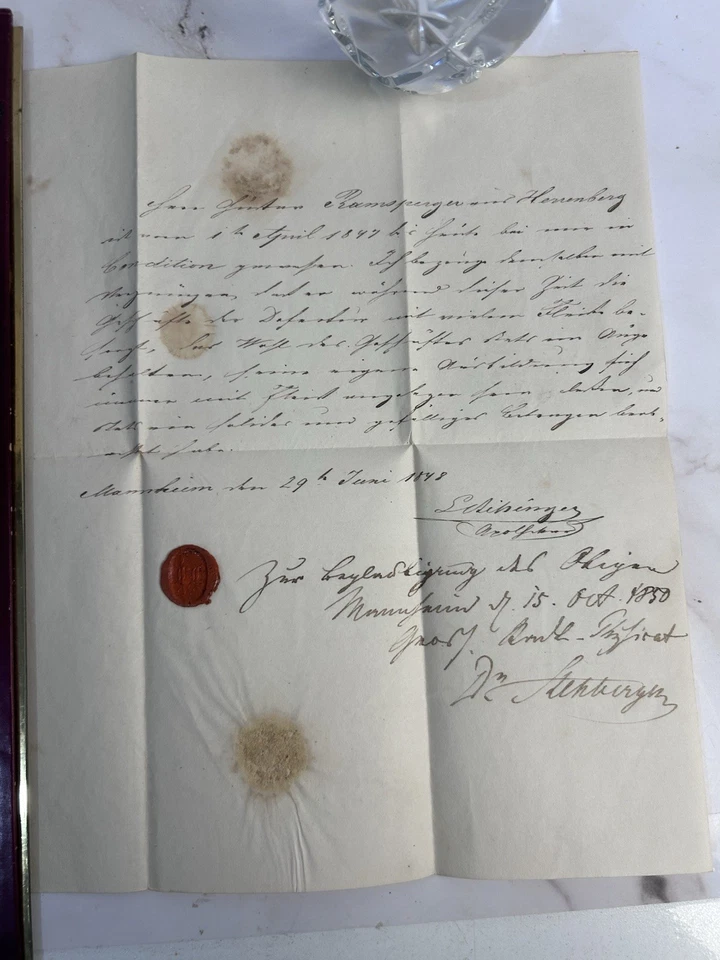 Herr Gustav Ramsperger aus Herrenberg
ist vom 1t April 1847 bis heute bei mir in
Condition gewesen. Ich bezeuge demselben mit
Vergnügen, daß er während dieser Zeit die
Geschäfte der Defectur mit vielem Fleiße be-
sorgt, das Wohl des Geschäftes stets im Auge
behalten, seine eigene Ausbildung sich
immer mit Fleiß angelegen sein laßen, u
stets ein solides und gefälliges Betragen beob-
achtet habe.
Mannheim den 29t Juni 1848
Apotheker
Zur Beglaubigung des Obigen
Mannheim d. 15. Oct. 1850
Gross. Stadt-Physicat
Dr Stehberger